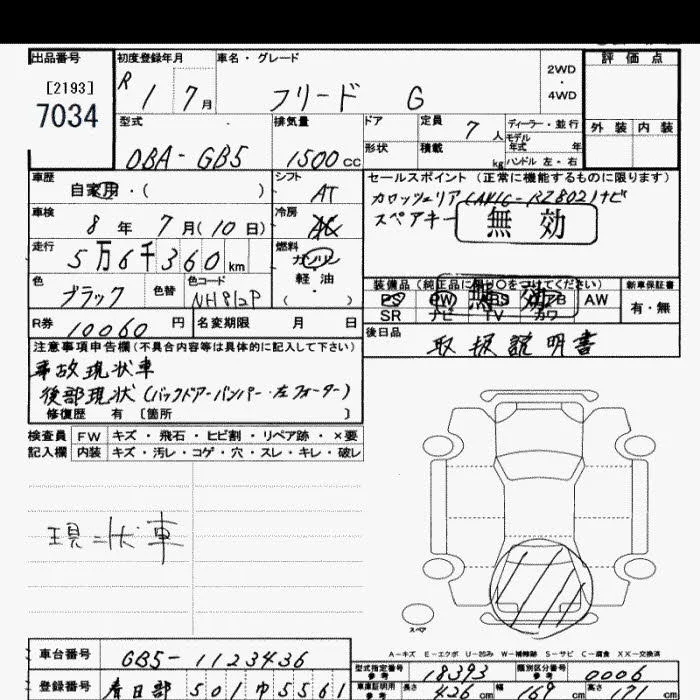 出品番号
[2193]
7034
初度登録年月
R 1 7月
車名・グレード
フリード G
2WD
・
4WD
評価点
外装 内装
型式
DBA-GB5
排気量
1500cc
ドア
形状
定員 7人
積載 kg
ディーラー・並行
モデル年式 年
ハンドル 左・右
車歴
自家用・( )
シフト
AT
セールスポイント(正常に機能するものに限ります)
スペアキー
無効
車検
8年 7月(10日)
冷房
AC
走行
5万6千360km
燃料
ガソリン
軽油
・
( )
色
ブラック
色替
色コード
NH812P
装備品(純正品に限り○をつけてください)
PS PW ABS AB AW
SR ナビ TV カワ
無効
新車保証書
有・無
R券 10060円
名変期限 月 日
後日品
取扱説明書
注意事項申告欄(不具合内容等は具体的に記入して下さい)
事故現状車
後部現状(バックドアーバンパー・左フォーター)
修復歴 有 〔箇所 〕
検査員記入欄
FW キズ・飛石・ヒビ割・リペア跡・×要
内装 キズ・汚レ・コゲ・穴・スレ・キレ・破レ
現状車
スペア
A-キズ E-エクボ U-凹み W-補修跡 S-サビ C-腐食 XX-交換済
車台番号
GB5-1123436
型式指定番号
参考
18393
類別区分番号
参考
0006
登録番号
春日部 501 ゆ 5561
車庫証明用
参考
長さ 426cm
幅 169cm
高さ 171cm